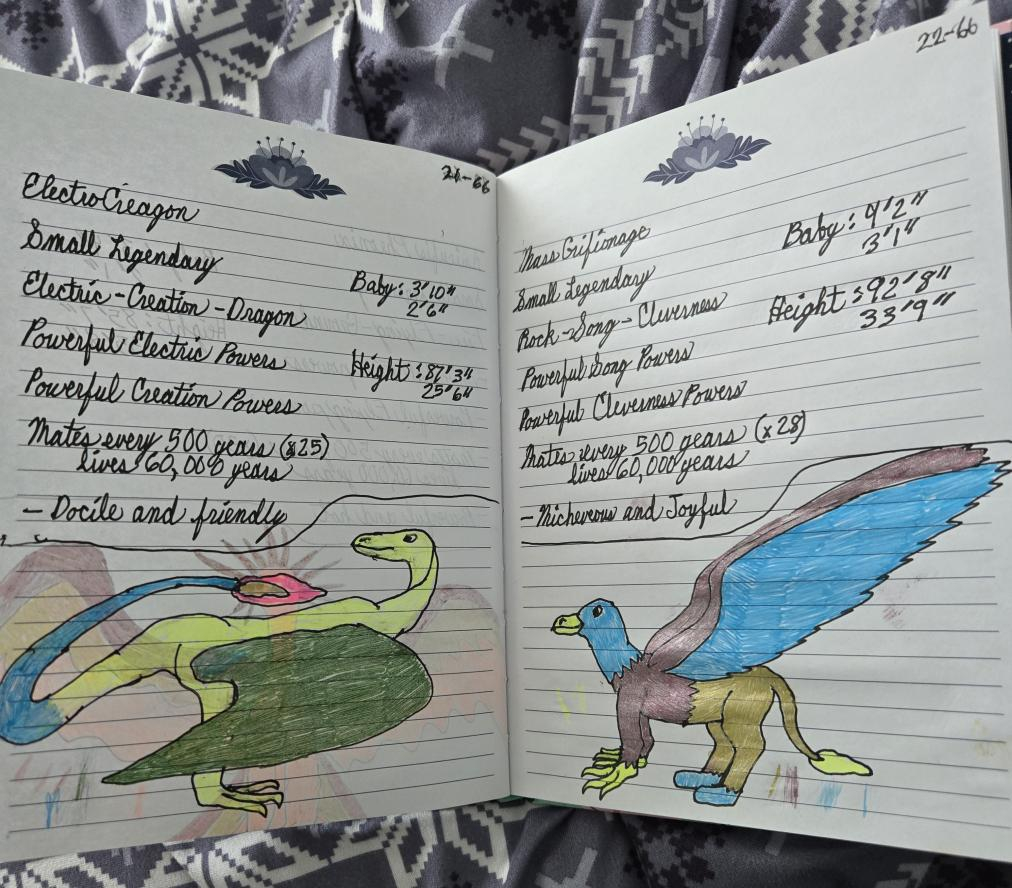 21-66
ElectroCreagon
Small Legendary
Baby: 3'10"
2'6"
Electric-Creation-Dragon
Powerful Electric Powers
Height: 87'3"
25'6"
Powerful Creation Powers
Mates every 500 years (x25)
lives 60,000 years
- Docile and friendly
22-66
Mass Grifionage
Baby: 4'2"
3'1"
Small Legendary
Rock-Song-Cleverness
Height: 92'8"
33'9"
Powerful Song Powers
Powerful Cleverness Powers
Mates every 500 years (x28)
lives 60,000 years
- Micheveous and Joyful